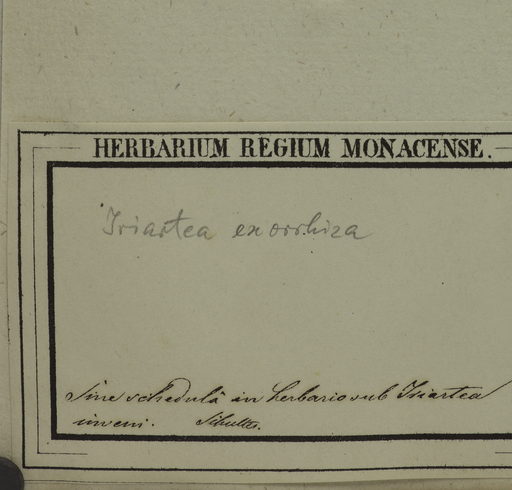 HERBARIUM REGIUM MONACENSE.
Iriartea exorrhiza
Sine schedulâ in herbario sub Iriartea
inveni. Schultes.